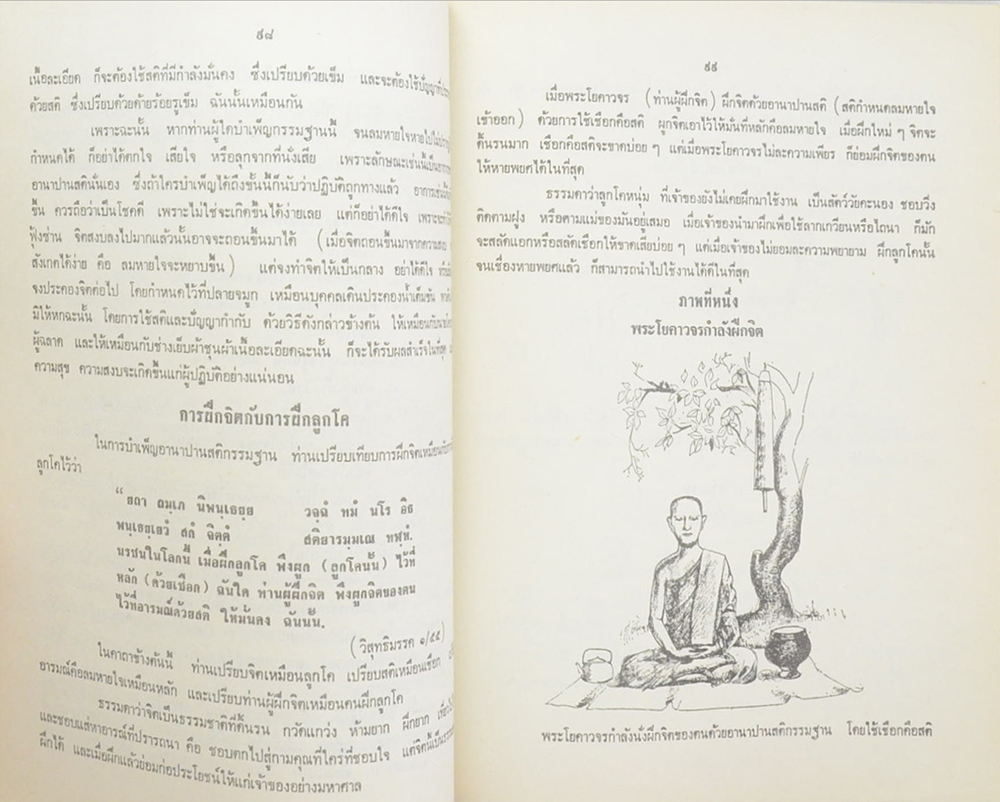 ๙๘
เนื้อละเอียด ก็จะต้องใช้สติที่มีกำลังมั่นคง ซึ่งเปรียบด้วยเข็ม และจะต้องใช้ปัญญาที่
ด้วยสติ ซึ่งเปรียบด้วยด้ายร้อยรูเข็ม ฉันนั้นเหมือนกัน
เพราะฉะนั้น หากท่านผู้ใดบำเพ็ญกรรมฐานนี้ จนลมหายใจหายไปไม่
กำหนดได้ ก็อย่าได้ตกใจ เสียใจ หรือลุกจากที่นั่งเสีย เพราะลักษณะเช่นนี้เป็น
อานาปานสตินั่นเอง ซึ่งถ้าใครบำเพ็ญได้ถึงขั้นนี้ก็นับว่าปฏิบัติถูกทางแล้ว
ขึ้น ควรถือว่าเป็นโชคดี เพราะไม่ใช่จะเกิดขึ้นได้ง่ายเลย แต่ก็อย่าได้ดีใจ
ฟุ้งซ่าน จิตสงบลงไปมากแล้วนั้นอาจจะถอนขึ้นมาได้ (เมื่อจิตถอนขึ้นมาจากความสงบ
สังเกตได้ง่าย คือ ลมหายใจจะหยาบขึ้น) แต่จงทำจิตให้เป็นกลาง อย่าได้ดีใจ
จงประคองจิตต่อไป โดยกำหนดไว้ที่ปลายจมูก เหมือนบุคคลเดินประคองน้ำเต็มขัน
มิให้หกฉะนั้น โดยการใช้สติและปัญญากำกับ ด้วยวิธีดังกล่าวข้างต้น ให้เหมือนกับ
ผู้ฉลาด และให้เหมือนกับช่างเย็บผ้าชุนผ้าเนื้อละเอียดฉะนั้น ก็จะได้รับผลสำเร็จในที่สุด
ความสุข ความสงบจะเกิดขึ้นแก่ผู้ปฏิบัติอย่างแน่นอน
การฝึกจิตกับการฝึกลูกโค
ในการบำเพ็ญอานาปานสติกรรมฐาน ท่านเปรียบเทียบการฝึกจิตเหมือนกับการ
ลูกโคไว้ว่า
“ยถา ถมฺเภ นิพนฺเธยฺย วจฺฉํ ทมํ นโร อิธ
พนฺเธยฺเยวํ สกํ จิตฺตํ สติยารมฺมเณ ทฬฺหํ.
นรชนในโลกนี้ เมื่อฝึกลูกโค พึงผูก (ลูกโคนั้น) ไว้ที่
หลัก (ด้วยเชือก) ฉันใด ท่านผู้ฝึกจิต พึงผูกจิตของตน
ไว้ที่อารมณ์ด้วยสติ ให้มั่นคง ฉันนั้น.
(วิสุทธิมรรค ๑/๕๕)
ในคาถาข้างต้นนี้ ท่านเปรียบจิตเหมือนลูกโค เปรียบสติเหมือนเชือก
อารมณ์คือลมหายใจเหมือนหลัก และเปรียบท่านผู้ฝึกจิตเหมือนคนฝึกลูกโค
ธรรมดาว่าจิตเป็นธรรมชาติที่ดิ้นรน กวัดแกว่ง ห้ามยาก ฝึกยาก
และชอบแส่หาอารมณ์ที่ปรารถนา คือ ชอบตกไปสู่กามคุณที่ใคร่ที่ชอบใจ แต่จิตนี้เป็น
ฝึกได้ และเมื่อฝึกแล้วย่อมก่อประโยชน์ให้แก่เจ้าของอย่างมหาศาล
๙๙
เมื่อพระโยคาวจร (ท่านผู้ฝึกจิต) ฝึกจิตด้วยอานาปานสติ (สติกำหนดลมหายใจ
เข้าออก) ด้วยการใช้เชือกคือสติ ผูกจิตเอาไว้ให้มั่นที่หลักคือลมหายใจ เมื่อฝึกใหม่ ๆ จิตจะ
ดิ้นรนมาก เชือกคือสติจะขาดบ่อย ๆ แต่เมื่อพระโยคาวจรไม่ละความเพียร ก็ย่อมฝึกจิตของตน
ให้หายพยศได้ในที่สุด
ธรรมดาว่าลูกโคหนุ่ม ที่เจ้าของยังไม่เคยฝึกมาใช้งาน เป็นสัตว์วัยคะนอง ชอบวิ่ง
ติดตามฝูง หรือตามแม่ของมันอยู่เสมอ เมื่อเจ้าของนำมาฝึกเพื่อใช้ลากเกวียนหรือไถนา ก็มัก
จะสลัดแอกหรือสลัดเชือกให้ขาดเสียบ่อย ๆ แต่เมื่อเจ้าของไม่ยอมละความพยายาม ฝึกลูกโคนั้น
จนเชื่องหายพยศแล้ว ก็สามารถนำไปใช้งานได้ดีในที่สุด
ภาพที่หนึ่ง
พระโยคาวจรกำลังฝึกจิต
พระโยคาวจรกำลังนั่งฝึกจิตของตนด้วยอานาปานสติกรรมฐาน โดยใช้เชือกคือสติ